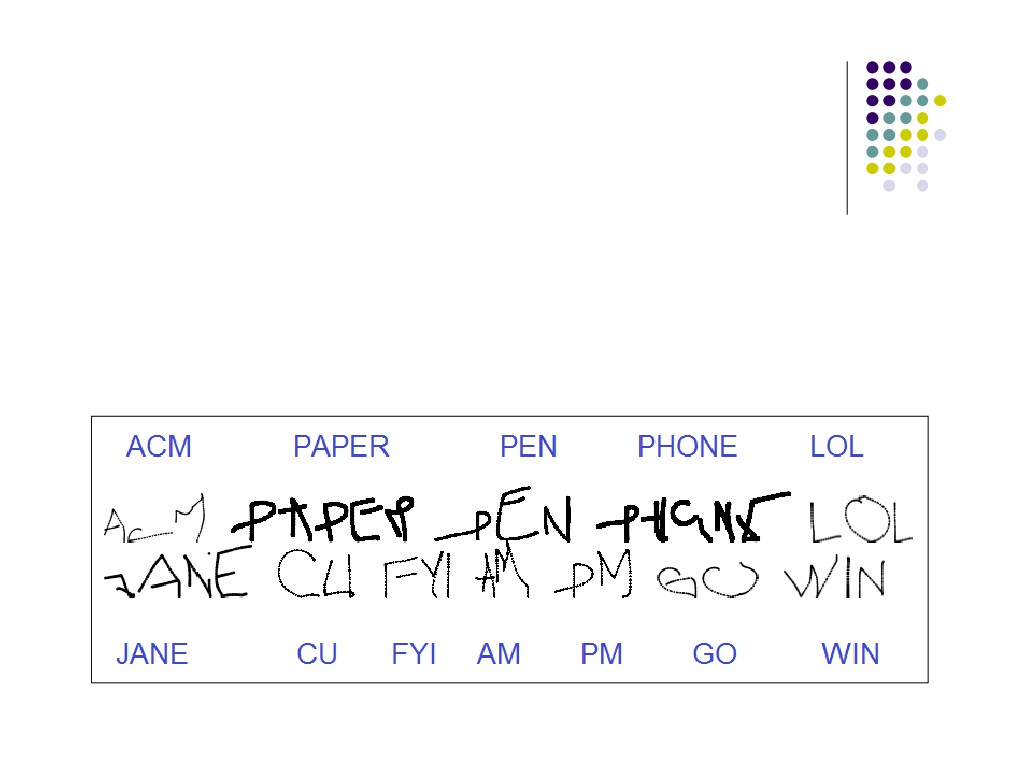 ACM PAPER PEN PHONE LOL
ACM PAPER PEN PHONE LOL
JANE CU FYI AM PM GO WIN
JANE CU FYI AM PM GO WIN